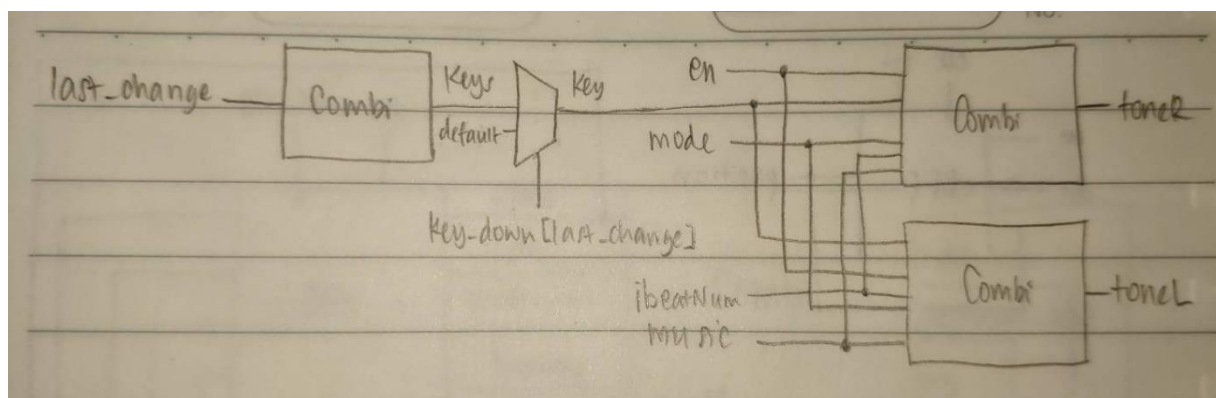 No.
last_change
Combi
keys
default
key
key_down[last_change]
en
mode
ibeatNum
music
Combi
toneR
Combi
toneL